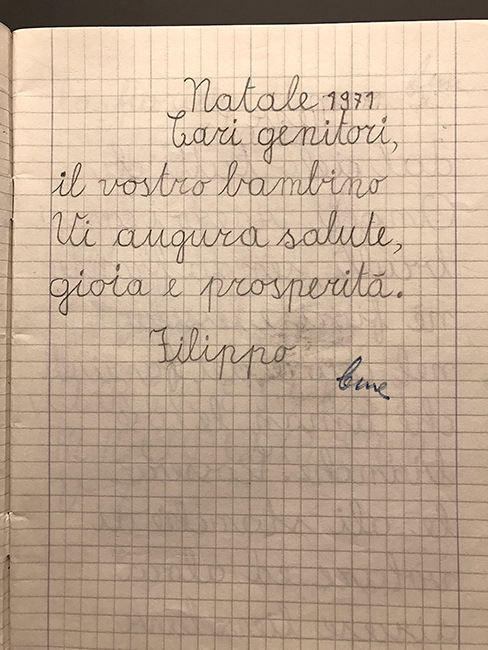 Natale 1971
Cari genitori,
il vostro bambino
Vi augura salute,
gioia e prosperità.
Filippo
bene